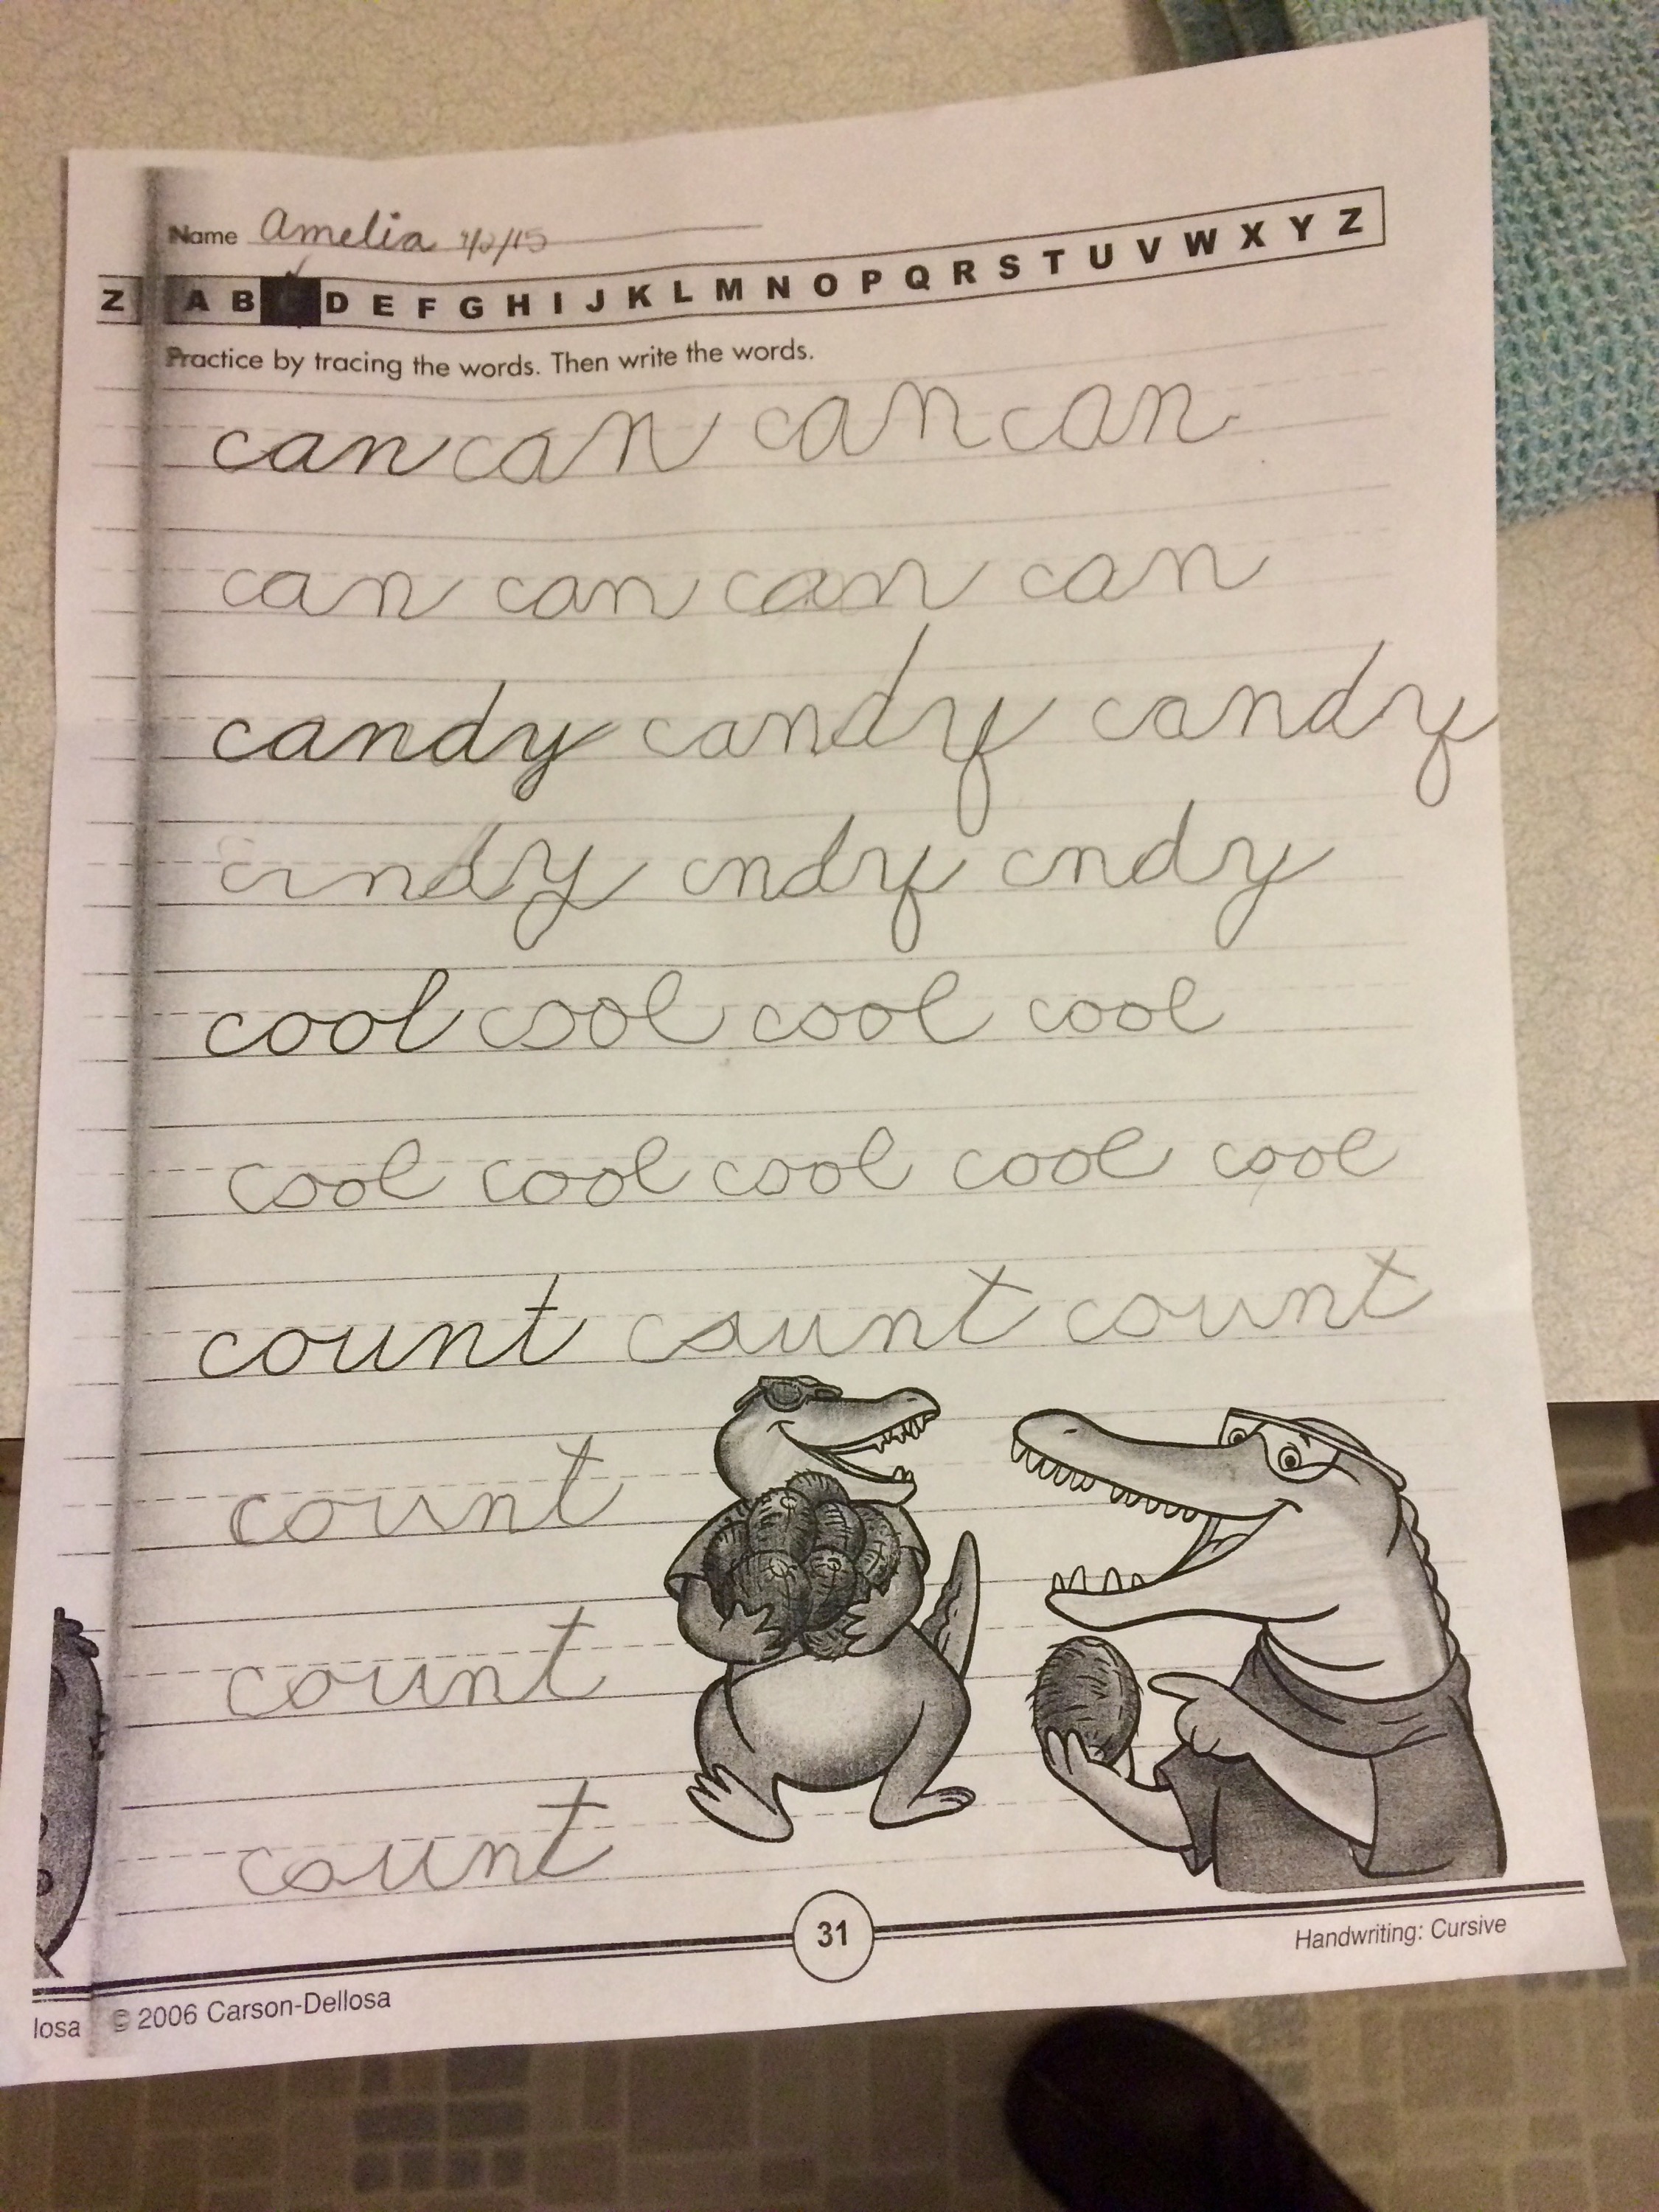 Name Amelia
Z A B C D E F G H I J K L M N O P Q R S T U V W X Y Z
Practice by tracing the words. Then write the words.
can can can can
can can can can
candy candy candy
cindy cndy cndy
cool cool cool cool
cool cool cool cool cool
count count count
count
count
count
31
Handwriting: Cursive
losa © 2006 Carson-Dellosa